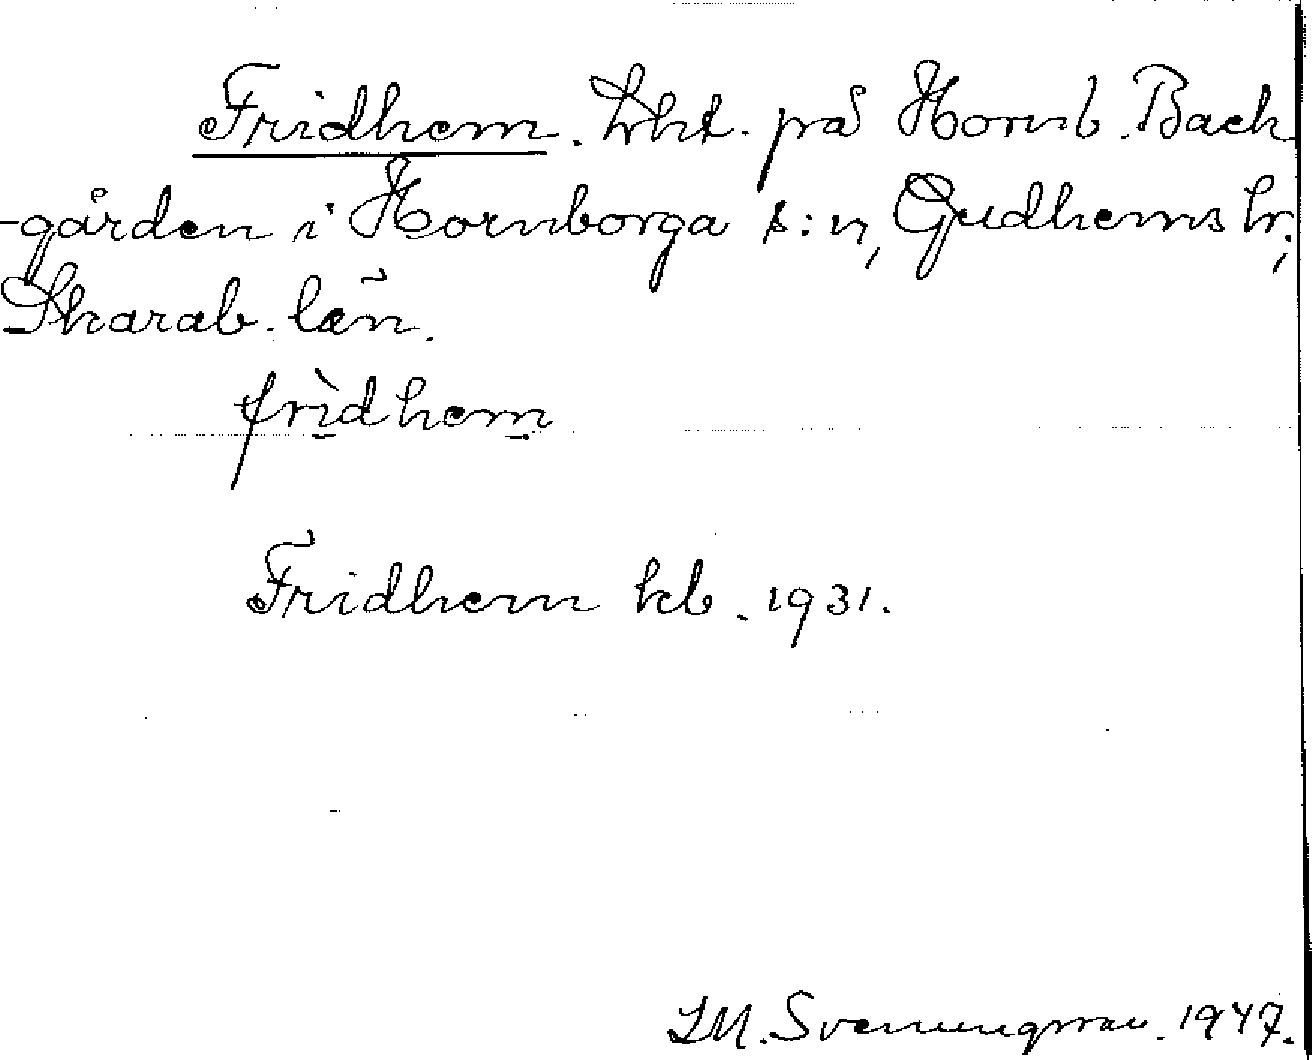 Fridhem. lht. på Hornb. Back
-gården i Hornborga s:n, Gudhems hr;
Skarab. län.
frìdhem
Fridhem kb. 1931.
Svenungsson. 1947.